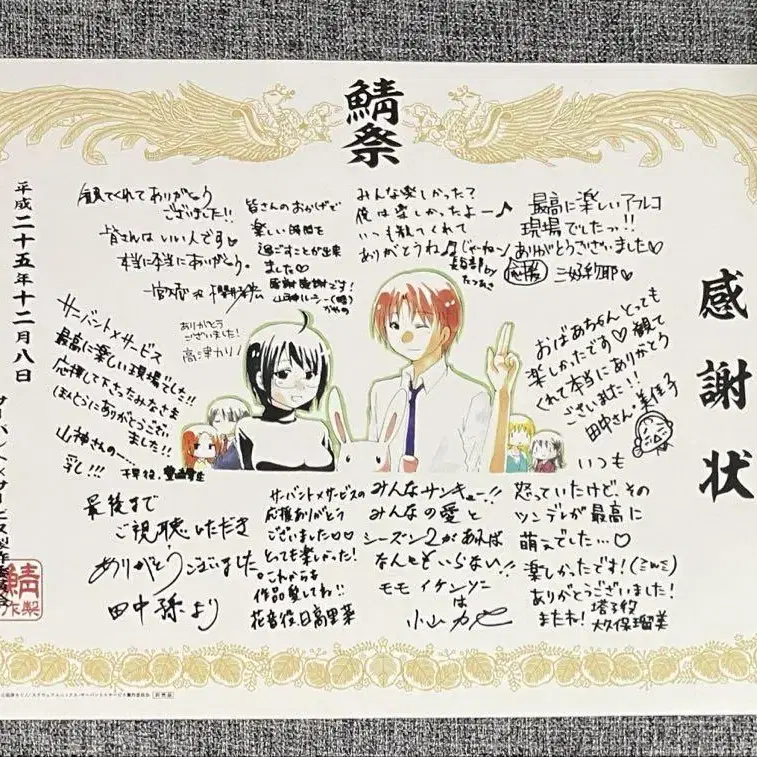 鯖祭
感謝状
観てくれてありがとう
ございました!!
皆さんはいい人です♡
本当に本当にありがとう。
皆さんのおかげで
楽しい時間を
過ごすことが出来
ました♡
感謝感謝です!
山神ルーシー(略)
かやの
みんな楽しかった?
俺は楽しかったよー♪
いつも観てくれて
ありがとうね♫じゃーねン
長谷部by
たつひさ
最高に楽しいアフレコ
現場でしたっ!!
ありがとうございました♡
三好紗耶♡
サーバント×サービス
最高に楽しい現場でした!!
応援して下さったみなさま
ほんとうにありがとうござい
ました!!
山神さんの…
乳!!!
千早役、豊崎愛生
ありがとう
ございました!
高津カリノ
おばあちゃんとっても
楽しかったです♡観て
くれて本当にありがとう
ございました!!
田中さん・美佳子
最後まで
ご視聴いただき
ありがとうございました
田中孫より
サーバント×サービスの
応援ありがとう
ございました♡♡
とっても楽しかった!
これからも
作品愛してね!!
花音役、日高里菜
みんなサンキュー!!
みんなの愛と
シーズン2があれば
なんにもいらない!!
モモイケンゾー
は
小山力也
いつも
怒っていたけど、その
ツンデレが最高に
萌えでした…♡
楽しかったです!(ミωミ)
ありがとうございました!
塔子役
またね! 大久保瑠美
平成二十五年十二月八日
サーバント×サービス製作委員会
鯖
製作
非売品